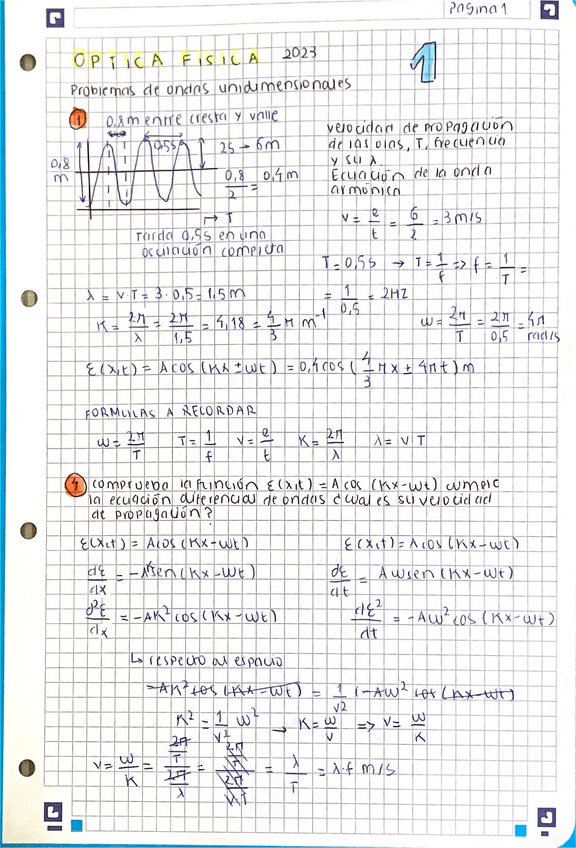 Pagina 1
OPTICA FISICA 2023
1
Problemas de ondas unidimensionales
1 0,8 m entre cresta y valle
0,5s
2s → 6m
0,8 m
0,8/2 = 0,4m
↦ T
Tarda 0,5s en una
oscilación completa
velocidad de propagación
de las olas, T, frecuencia
y su λ.
Ecuación de la onda
armónica
v = e/t = 6/2 = 3 m/s
T = 0,5s → T = 1/f => f = 1/T =
= 1/0,5 = 2HZ
λ = v·T = 3·0,5 = 1,5 m
K = 2π/λ = 2π/1,5 = 4,18 = 4/3 π m⁻¹
ω = 2π/T = 2π/0,5 = 4π rad/s
ε(x,t) = A cos (Kx ± wt) = 0,4 cos (4/3 πx ± 4πt) m
FORMULAS A RECORDAR
ω = 2π/T T = 1/f v = e/t K = 2π/λ λ = v·T
4 comprueba la función ε(x,t) = A cos (Kx - wt) cumple
la ecuación diferencial de ondas ¿cual es su velocidad
de propagación?
ε(x,t) = A cos (Kx - wt)
dε/dx = -AKsen (Kx - wt)
d²ε/dx = -AK² cos (Kx - wt)
↳ respecto al espacio
ε(x,t) = A cos (Kx - wt)
dε/dt = Awsen (Kx - wt)
dε²/dt = -Aw² cos (Kx - wt)
-AK² cos (Kx - wt) = 1/v² (-Aw² cos (Kx - wt)
K² = 1/v² w² → K = w/v => v = w/K
v = w/K = 2π/T / 2π/λ = = λ/T = λ·f m/s